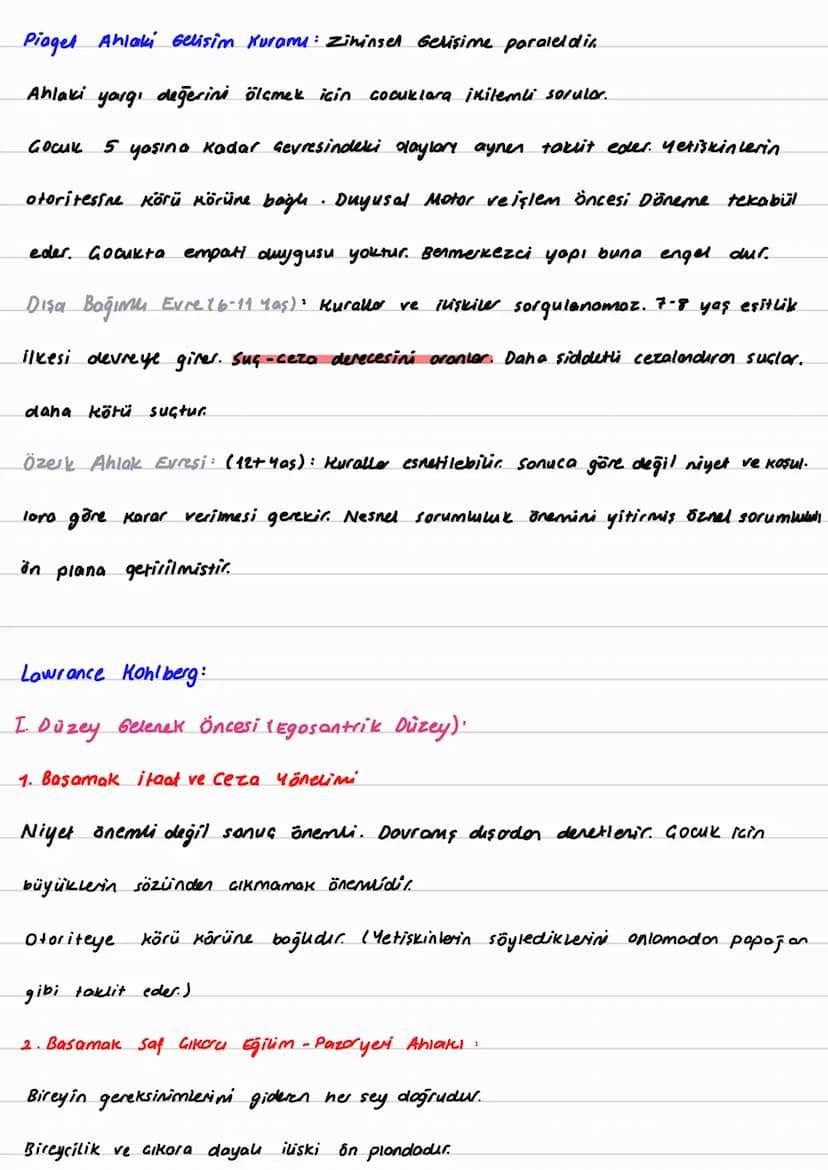 Piaget Ahlaki Gelişim Kuramı: Zihinsel Gelişime paraleldir.
Ahlaki yargı değerini ölçmek için çocuklara ikilemli sorular.
Çocuk 5 yaşına kadar çevresindeki olayları aynen taklit eder. Yetişkinlerin
otoritesine körü körüne bağlı. Duyusal Motor ve işlem öncesi Döneme tekabül
eder. Çocukta empati duygusu yoktur. Benmerkezci yapı buna engel dur.
Dışa Bağımlı Evre (6-11 Yaş): Kurallar ve ilişkiler sorgulanamaz. 7-8 yaş eşitlik
ilkesi devreye girer. Suç-ceza derecesini oranlar. Daha şiddetli cezalandıran suçlar,
daha kötü suçtur.
Özerk Ahlak Evresi: (12+ Yaş): Kurallar esnetilebilir. Sonuca göre değil niyet ve koşul-
lara göre karar verilmesi gerekir. Nesnel sorumluluk önemini yitirmiş öznel sorumluluk
ön plana getirilmiştir.
Lawrance Kohlberg:
I. Düzey Gelenek Öncesi (Egosantrik Düzey):
1. Basamak İtaat ve Ceza Yönelimi
Niyet önemli değil sonuç önemli. Davranış dışarıdan denetlenir. Çocuk için
büyüklerin sözünden çıkmamak önemlidir.
Otoriteye körü körüne bağlıdır. (Yetişkinlerin söylediklerini anlamadan papağan
gibi taklit eder.)
2. Basamak Saf Çıkarcı Eğilim - Pazaryeri Ahlakı:
Bireyin gereksinimlerini gideren her şey doğrudur.
Bireycilik ve çıkara dayalı ilişki ön plandadır.